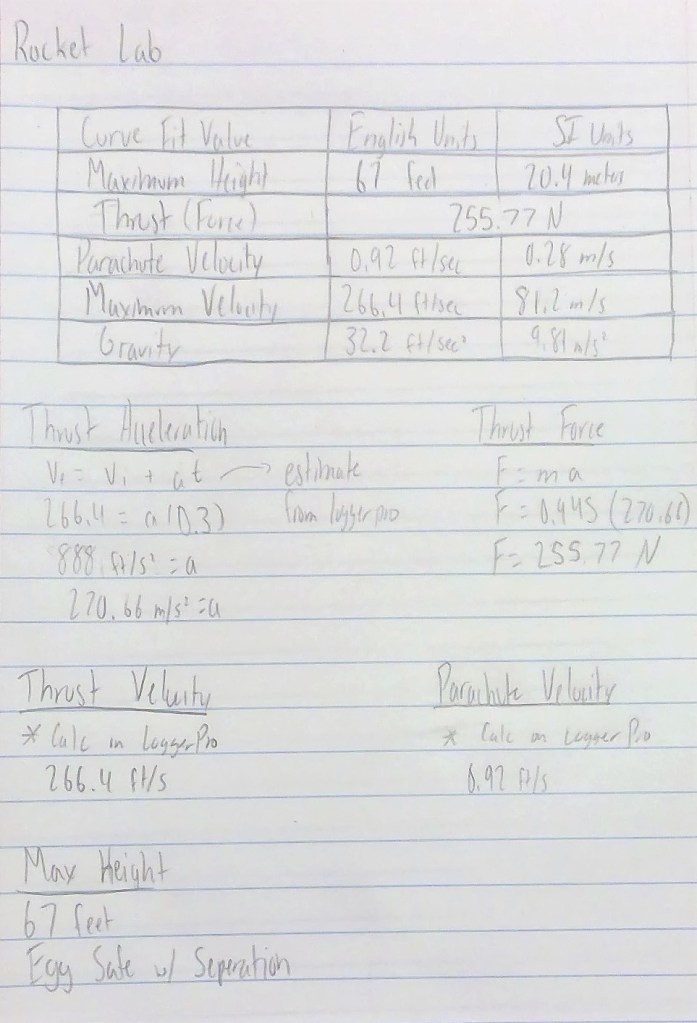 Rocket Lab
Curve Fit Value English Units SI Units
Maximum Height 67 feet 20.4 meters
Thrust (Force) 255.77 N
Parachute Velocity 0.92 ft/sec 0.28 m/s
Maximum Velocity 266.4 ft/sec 81.2 m/s
Gravity 32.2 ft/sec² 9.81 m/s²
Thrust Acceleration
Vf = Vi + at → estimate
266.4 = a(0.3) from logger pro
888 ft/s² = a
270.66 m/s² = a
Thrust Force
F = ma
F = 0.945 (270.66)
F = 255.77 N
Thrust Velocity
* Calc in LoggerPro
266.4 ft/s
Parachute Velocity
* Calc on Logger Pro
0.92 ft/s
Max Height
67 feet
Egg Safe w/ Seperation